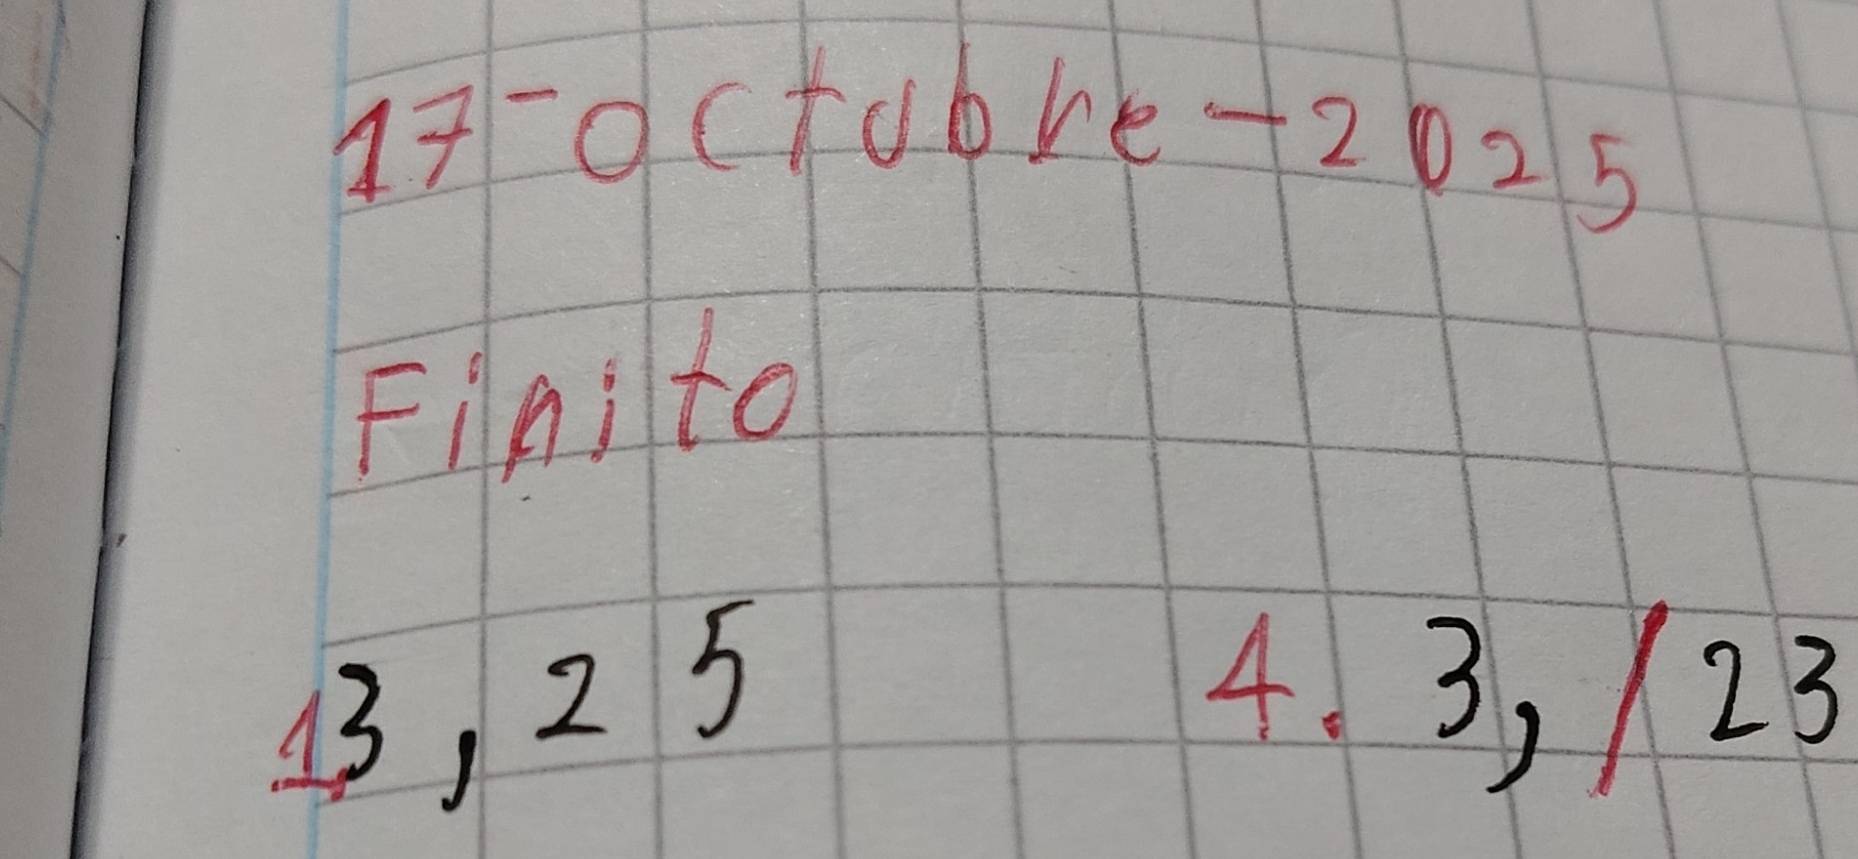 17-octubre-2025
Finito
1. 3,25 4. 3,/23